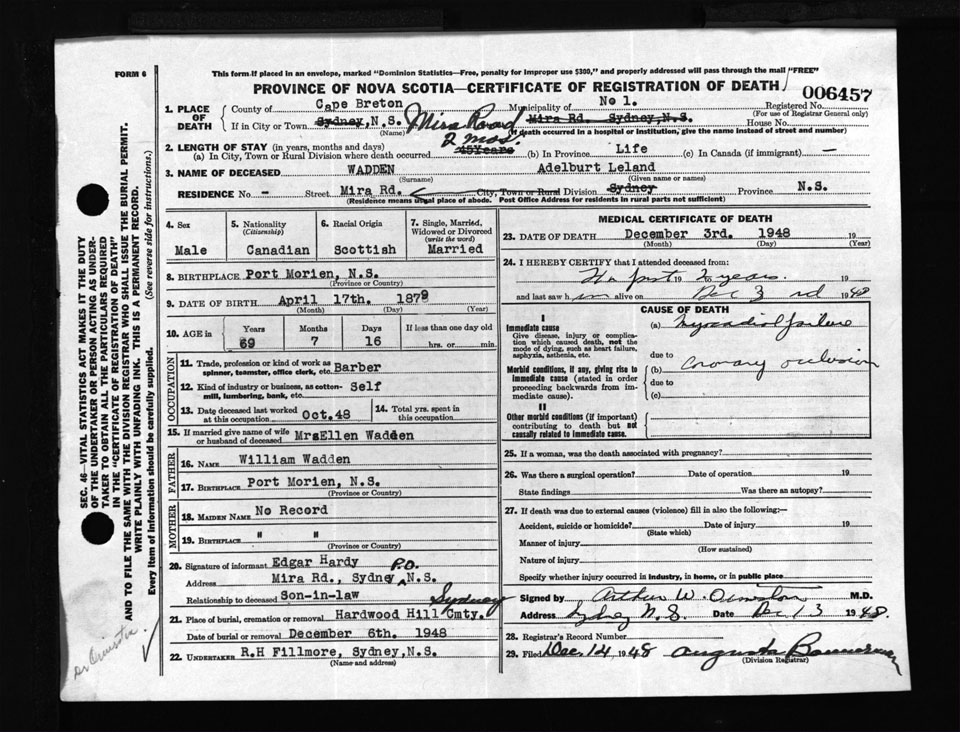 FORM 6
This form if placed in an envelope, marked "Dominion Statistics—Free, penalty for improper use $300," and properly addressed will pass through the mail "FREE"
PROVINCE OF NOVA SCOTIA—CERTIFICATE OF REGISTRATION OF DEATH
006457
1. PLACE OF DEATH County of Cape Breton Municipality of No 1. Registered No.
(For use of Registrar General only)
If in City or Town Sydney, N.S. Mira Road Mira Rd. Sydney, N.S. House No.
(If death occurred in a hospital or institution, give the name instead of street and number)
2. LENGTH OF STAY (in years, months and days) 2 mos.
(a) In City, Town or Rural Division where death occurred 45Years (b) In Province Life (c) In Canada (if immigrant) —
3. NAME OF DECEASED WADDEN Adelburt Leland
(Surname) (Given name or names)
RESIDENCE No - Street Mira Rd. City, Town or Rural Division Sydney Province N.S.
(Residence means usual place of abode. Post Office Address for residents in rural parts not sufficient)
4. Sex Male
5. Nationality (Citizenship) Canadian
6. Racial Origin Scottish
7. Single, Married, Widowed or Divorced (write the word) Married
8. BIRTHPLACE Port Morien, N.S.
(Province or Country)
9. DATE OF BIRTH April 17th. 1879
(Month) (Day) (Year)
10. AGE in Years 69 Months 7 Days 16 If less than one day old hrs. or min.
OCCUPATION
11. Trade, profession or kind of work as spinner, teamster, office clerk, etc. Barber
12. Kind of industry or business, as cotton-mill, lumbering, bank, etc. Self
13. Date deceased last worked at this occupation Oct.48
14. Total yrs. spent in this occupation
15. If married give name of wife or husband of deceased MrsEllen Wadden
FATHER
16. NAME William Wadden
17. BIRTHPLACE Port Morien, N.S.
(Province or Country)
MOTHER
18. MAIDEN NAME No Record
19. BIRTHPLACE " "
(Province or Country)
20. Signature of informant Edgar Hardy
Address Mira Rd., Sydney P.O. N.S.
Relationship to deceased Son-in-law
21. Place of burial, cremation or removal Hardwood Hill Cmty. Sydney
Date of burial or removal December 6th. 1948
22. UNDERTAKER R.H Fillmore, Sydney,N.S.
(Name and address)
MEDICAL CERTIFICATE OF DEATH
23. DATE OF DEATH December 3rd. 1948 19
(Month) (Day) (Year)
24. I HEREBY CERTIFY that I attended deceased from:
19 to 2 years. 19
and last saw him alive on Dec 3rd 1948
CAUSE OF DEATH
I
Immediate cause
Give disease, injury or complication which caused death, not the mode of dying, such as heart failure, asphyxia, asthenia, etc.
(a) Myocardial failure
due to
Morbid conditions, if any, giving rise to immediate cause (stated in order proceeding backwards from immediate cause).
(b) Coronary occlusion
due to
(c)
II
Other morbid conditions (if important) contributing to death but not causally related to immediate cause.
25. If a woman, was the death associated with pregnancy?
26. Was there a surgical operation? Date of operation 19
State findings Was there an autopsy?
27. If death was due to external causes (violence) fill in also the following:—
Accident, suicide or homicide? Date of injury 19
(State which)
Manner of injury
(How sustained)
Nature of injury
Specify whether injury occurred in industry, in home, or in public place
Signed by Arthur W. Ormiston M.D.
Address Sydney N.S. Date Dec 13 1948.
28. Registrar's Record Number
29. Filed Dec. 14 1948 Augusta Bannerman
(Division Registrar)
SEC. 46—VITAL STATISTICS ACT MAKES IT THE DUTY
OF THE UNDERTAKER OR PERSON ACTING AS UNDER-
TAKER TO OBTAIN ALL THE PARTICULARS REQUIRED
IN THE "CERTIFICATE OF REGISTRATION OF DEATH"
AND TO FILE THE SAME WITH THE DIVISION REGISTRAR WHO SHALL ISSUE THE BURIAL PERMIT.
WRITE PLAINLY WITH UNFADING INK. THIS IS A PERMANENT RECORD.
Every item of information should be carefully supplied. (See reverse side for instructions.)
Dr Ormiston